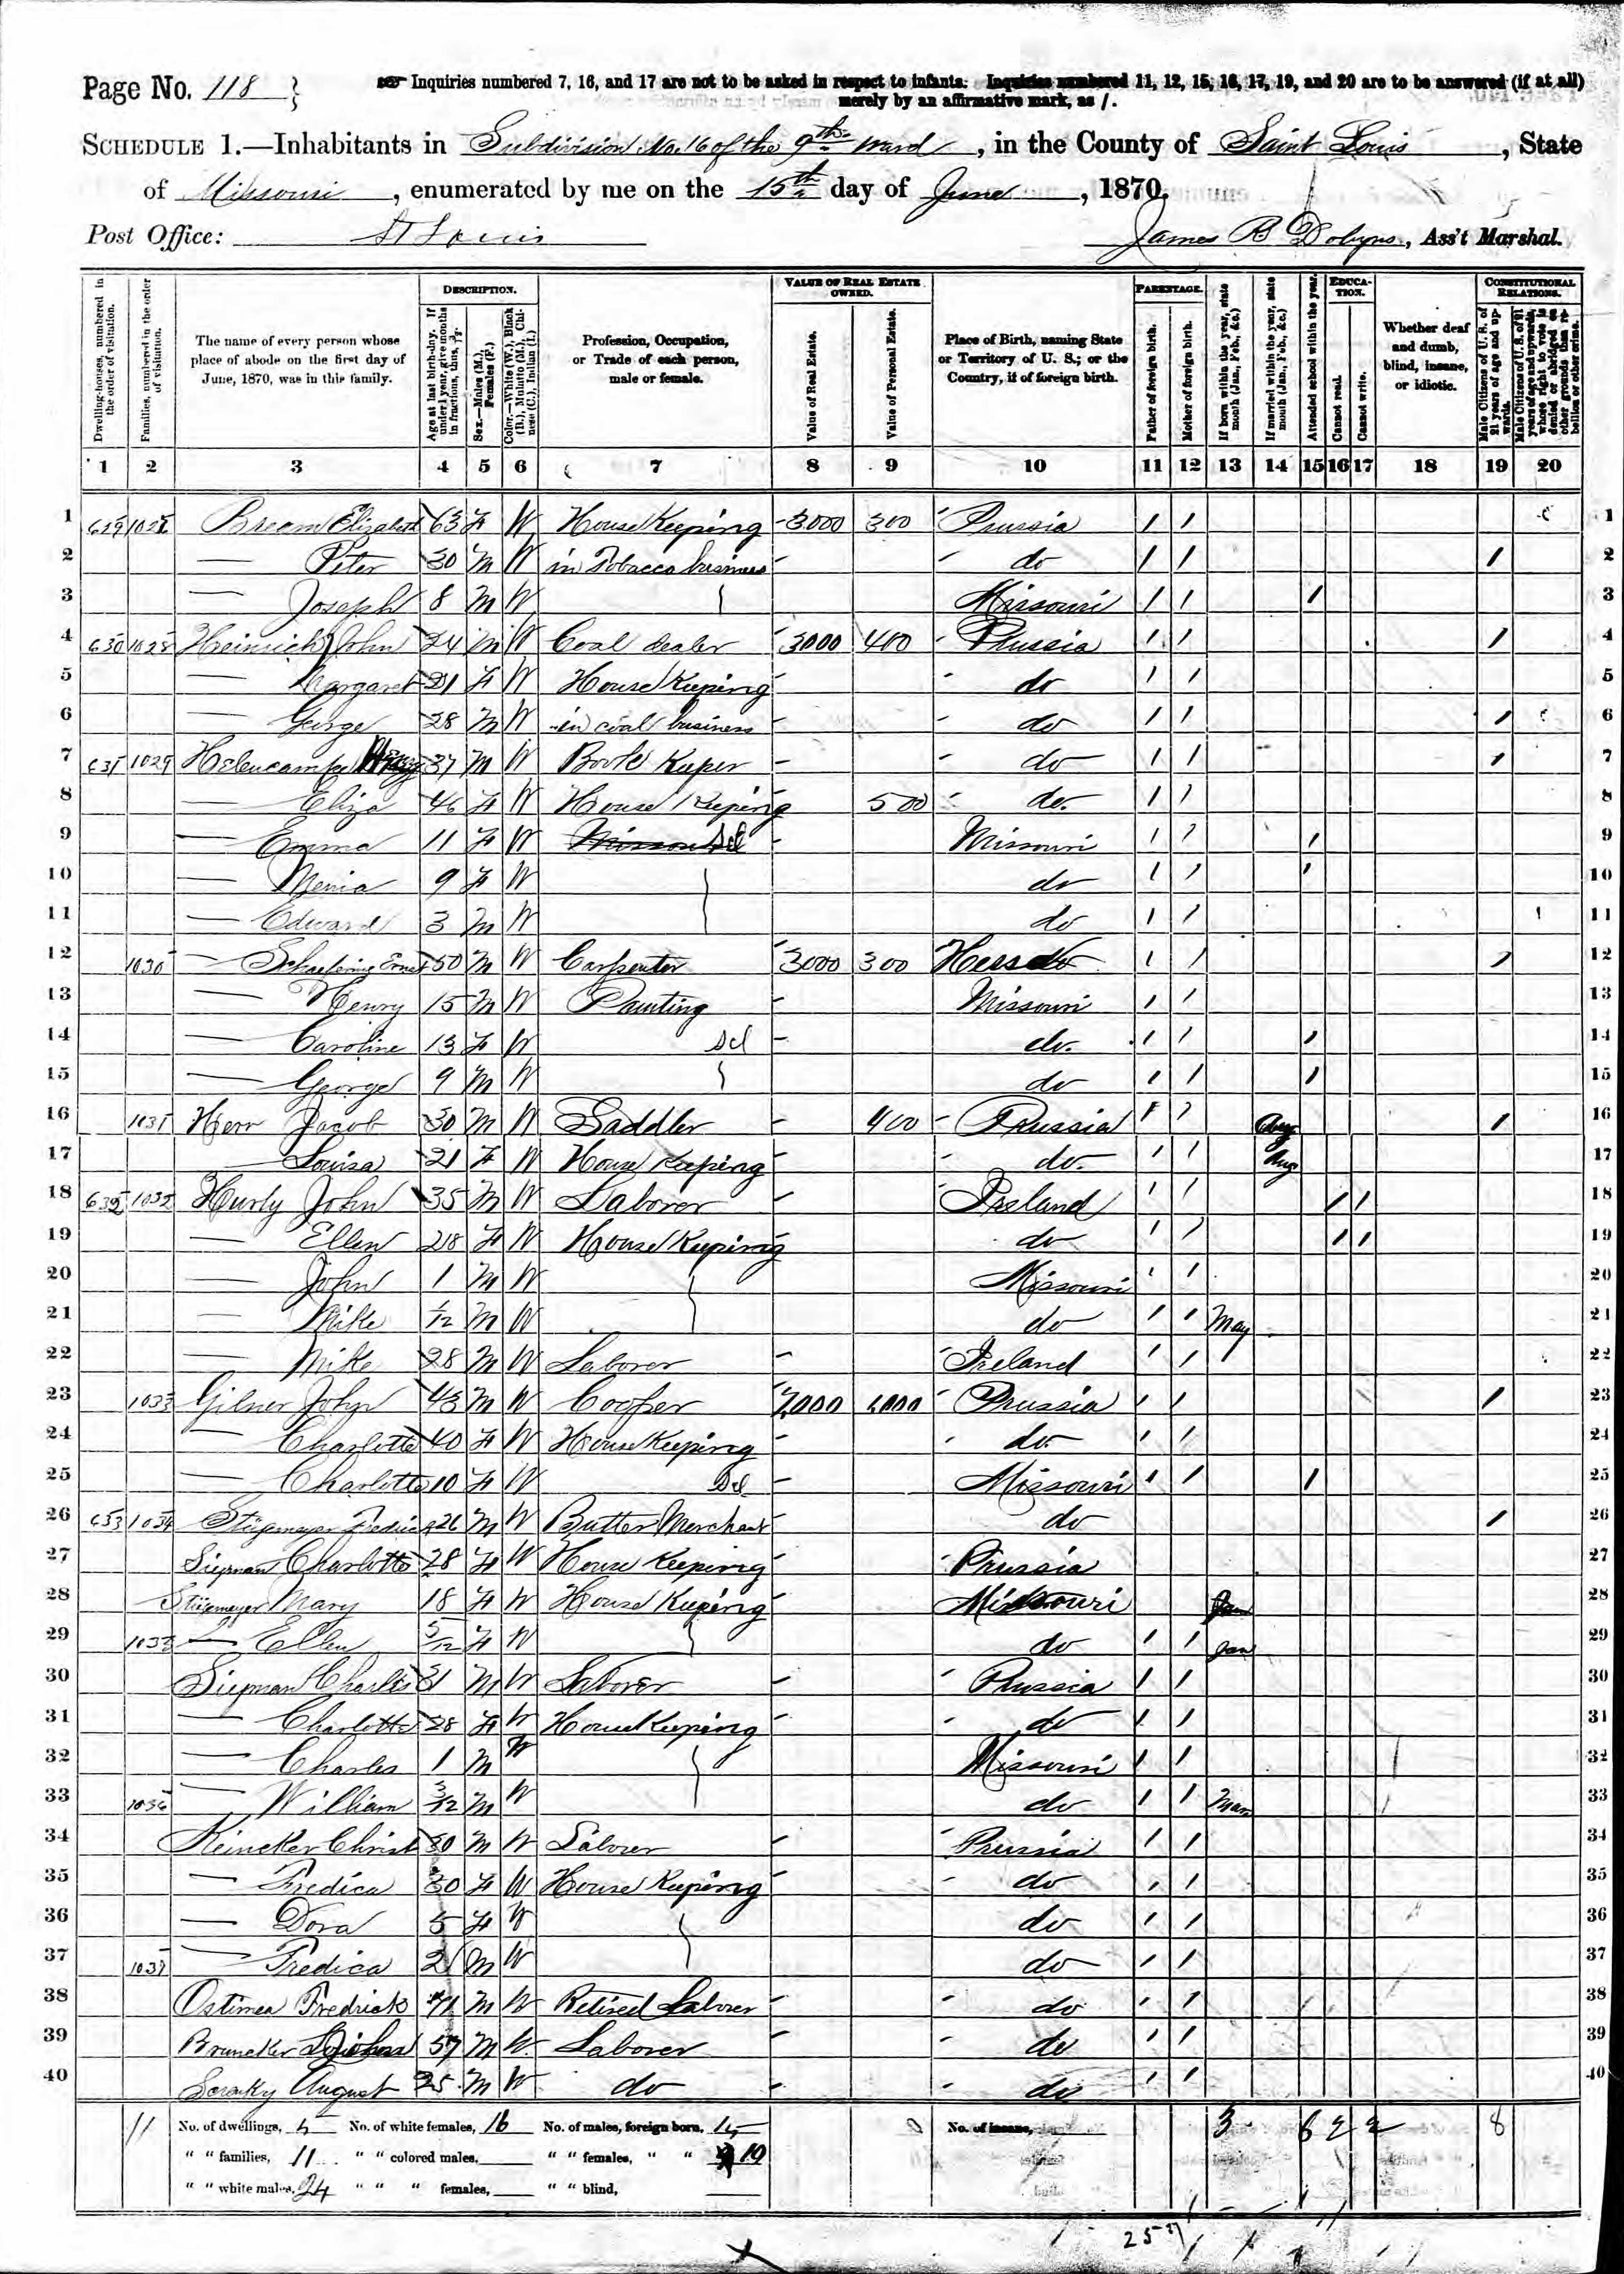 Page No. 118
Inquiries numbered 7, 16, and 17 are not to be asked in respect to infants. Inquiries numbered 11, 12, 15, 16, 17, 19, and 20 are to be answered (if at all)
merely by an affirmative mark, as /.
SCHEDULE 1.—Inhabitants in Subdivision No. 16 of the 9th Ward, in the County of Saint Louis, State
of Missouri, enumerated by me on the 15th day of June, 1870.
Post Office: St Louis James R Dobyns, Ass't Marshal.
Dwelling-houses, numbered in the order of visitation.
Families, numbered in the order of visitation.
The name of every person whose place of abode on the first day of June, 1870, was in this family.
DESCRIPTION.
Age at last birth-day. If under 1 year, give months in fractions, thus, 3/12
Sex.—Males (M.), Females (F.)
Color.—White (W.), Black (B.), Mulatto (M.), Chinese (C.), Indian (I.)
Profession, Occupation, or Trade of each person, male or female.
VALUE OF REAL ESTATE OWNED.
Value of Real Estate.
Value of Personal Estate.
Place of Birth, naming State or Territory of U. S.; or the Country, if of foreign birth.
PARENTAGE.
Father of foreign birth.
Mother of foreign birth.
If born within the year, state month (Jan., Feb., &c.)
If married within the year, state month (Jan., Feb., &c.)
Attended school within the year.
EDUCATION.
Cannot read.
Cannot write.
Whether deaf and dumb, blind, insane, or idiotic.
CONSTITUTIONAL RELATIONS.
Male Citizens of U. S. of 21 years of age and upwards.
Male Citizens of U. S. of 21 years of age and upwards, whose right to vote is denied or abridged on other grounds than rebellion or other crime.
1 2 3 4 5 6 7 8 9 10 11 12 13 14 15 16 17 18 19 20
1 629 Elizabeth 63 F W House Keeping 3000 300 Prussia / / 1
2 — Peter 30 M W in Tobacco business do / / / 2
3 — Joseph 8 M W Missouri / / / 3
4 630 1028 Heinrich John 24 M W Coal dealer 3000 400 Prussia / / / 4
5 — Margaret 21 F W House Keeping do / / 5
6 — George 28 M W in coal business do / / / 6
7 631 1029 Helencamp 37 M W Book Keeper do / / / 7
8 — Eliza 46 F W House Keeping 500 do. / / 8
9 — Emma 11 F W Scl Missouri / / / 9
10 — Menia 9 F W do / / / 10
11 — Edward 3 M W do / / 11
12 1030 — Ernst 50 M W Carpenter 3000 300 Hess / / / 12
13 — Henry 15 M W Painting Missouri / / 13
14 — Caroline 13 F W Scl do. / / / 14
15 — George 9 M W do / / / 15
16 1031 Herr Jacob 30 M W Saddler 400 Prussia / / Aug / 16
17 Louisa 21 F W House Keeping do. / / Aug 17
18 632 1032 Hurly John 35 M W Laborer Ireland / / / / 18
19 — Ellen 28 F W House Keeping do / / / / 19
20 — John 1 M W Missouri / / 20
21 — Mike 1/12 M W do / / May 21
22 — Mike 28 M W Laborer Ireland / / 22
23 1033 Gilner John 43 M W Cooper 7,000 1,000 Prussia / / / 23
24 — Charlotte 40 F W House Keeping do. / / 24
25 — Charlotte 10 F W Scl Missouri / / / 25
26 633 1034 Stiegmeyer Fredric 26 M W Butter Merchant do / 26
27 Siepman Charlotte 28 F W House Keeping Prussia 27
28 Stiegmeyer Mary 18 F W House Keeping Missouri 28
29 1035 — Ellen 5/12 F W do / / Jan 29
30 Siepman Charles 31 M W Laborer Prussia / / 30
31 — Charlotte 28 F W House Keeping do / / 31
32 — Charles 1 M W Missouri / / 32
33 1036 — William 3/12 M W do / / Mar 33
34 Reineker Christ 30 M W Laborer Prussia / / 34
35 — Fredica 30 F W House Keeping do / / 35
36 — Dora 5 F W do / / 36
37 1037 — Fredica 2 M W do / / 37
38 Fredrick 71 M W Retired Laborer do / / 38
39 Bruneker 57 M W Laborer do / / 39
40 August 25 M W do do / / 40
11 No. of dwellings, 5 No. of white females, 16 No. of males, foreign born, 15 No. of insane, 3 6 2 2 8
" " families, 11 " " colored males, " " females, " " 10
" " white males, 24 " " " females, " " blind,